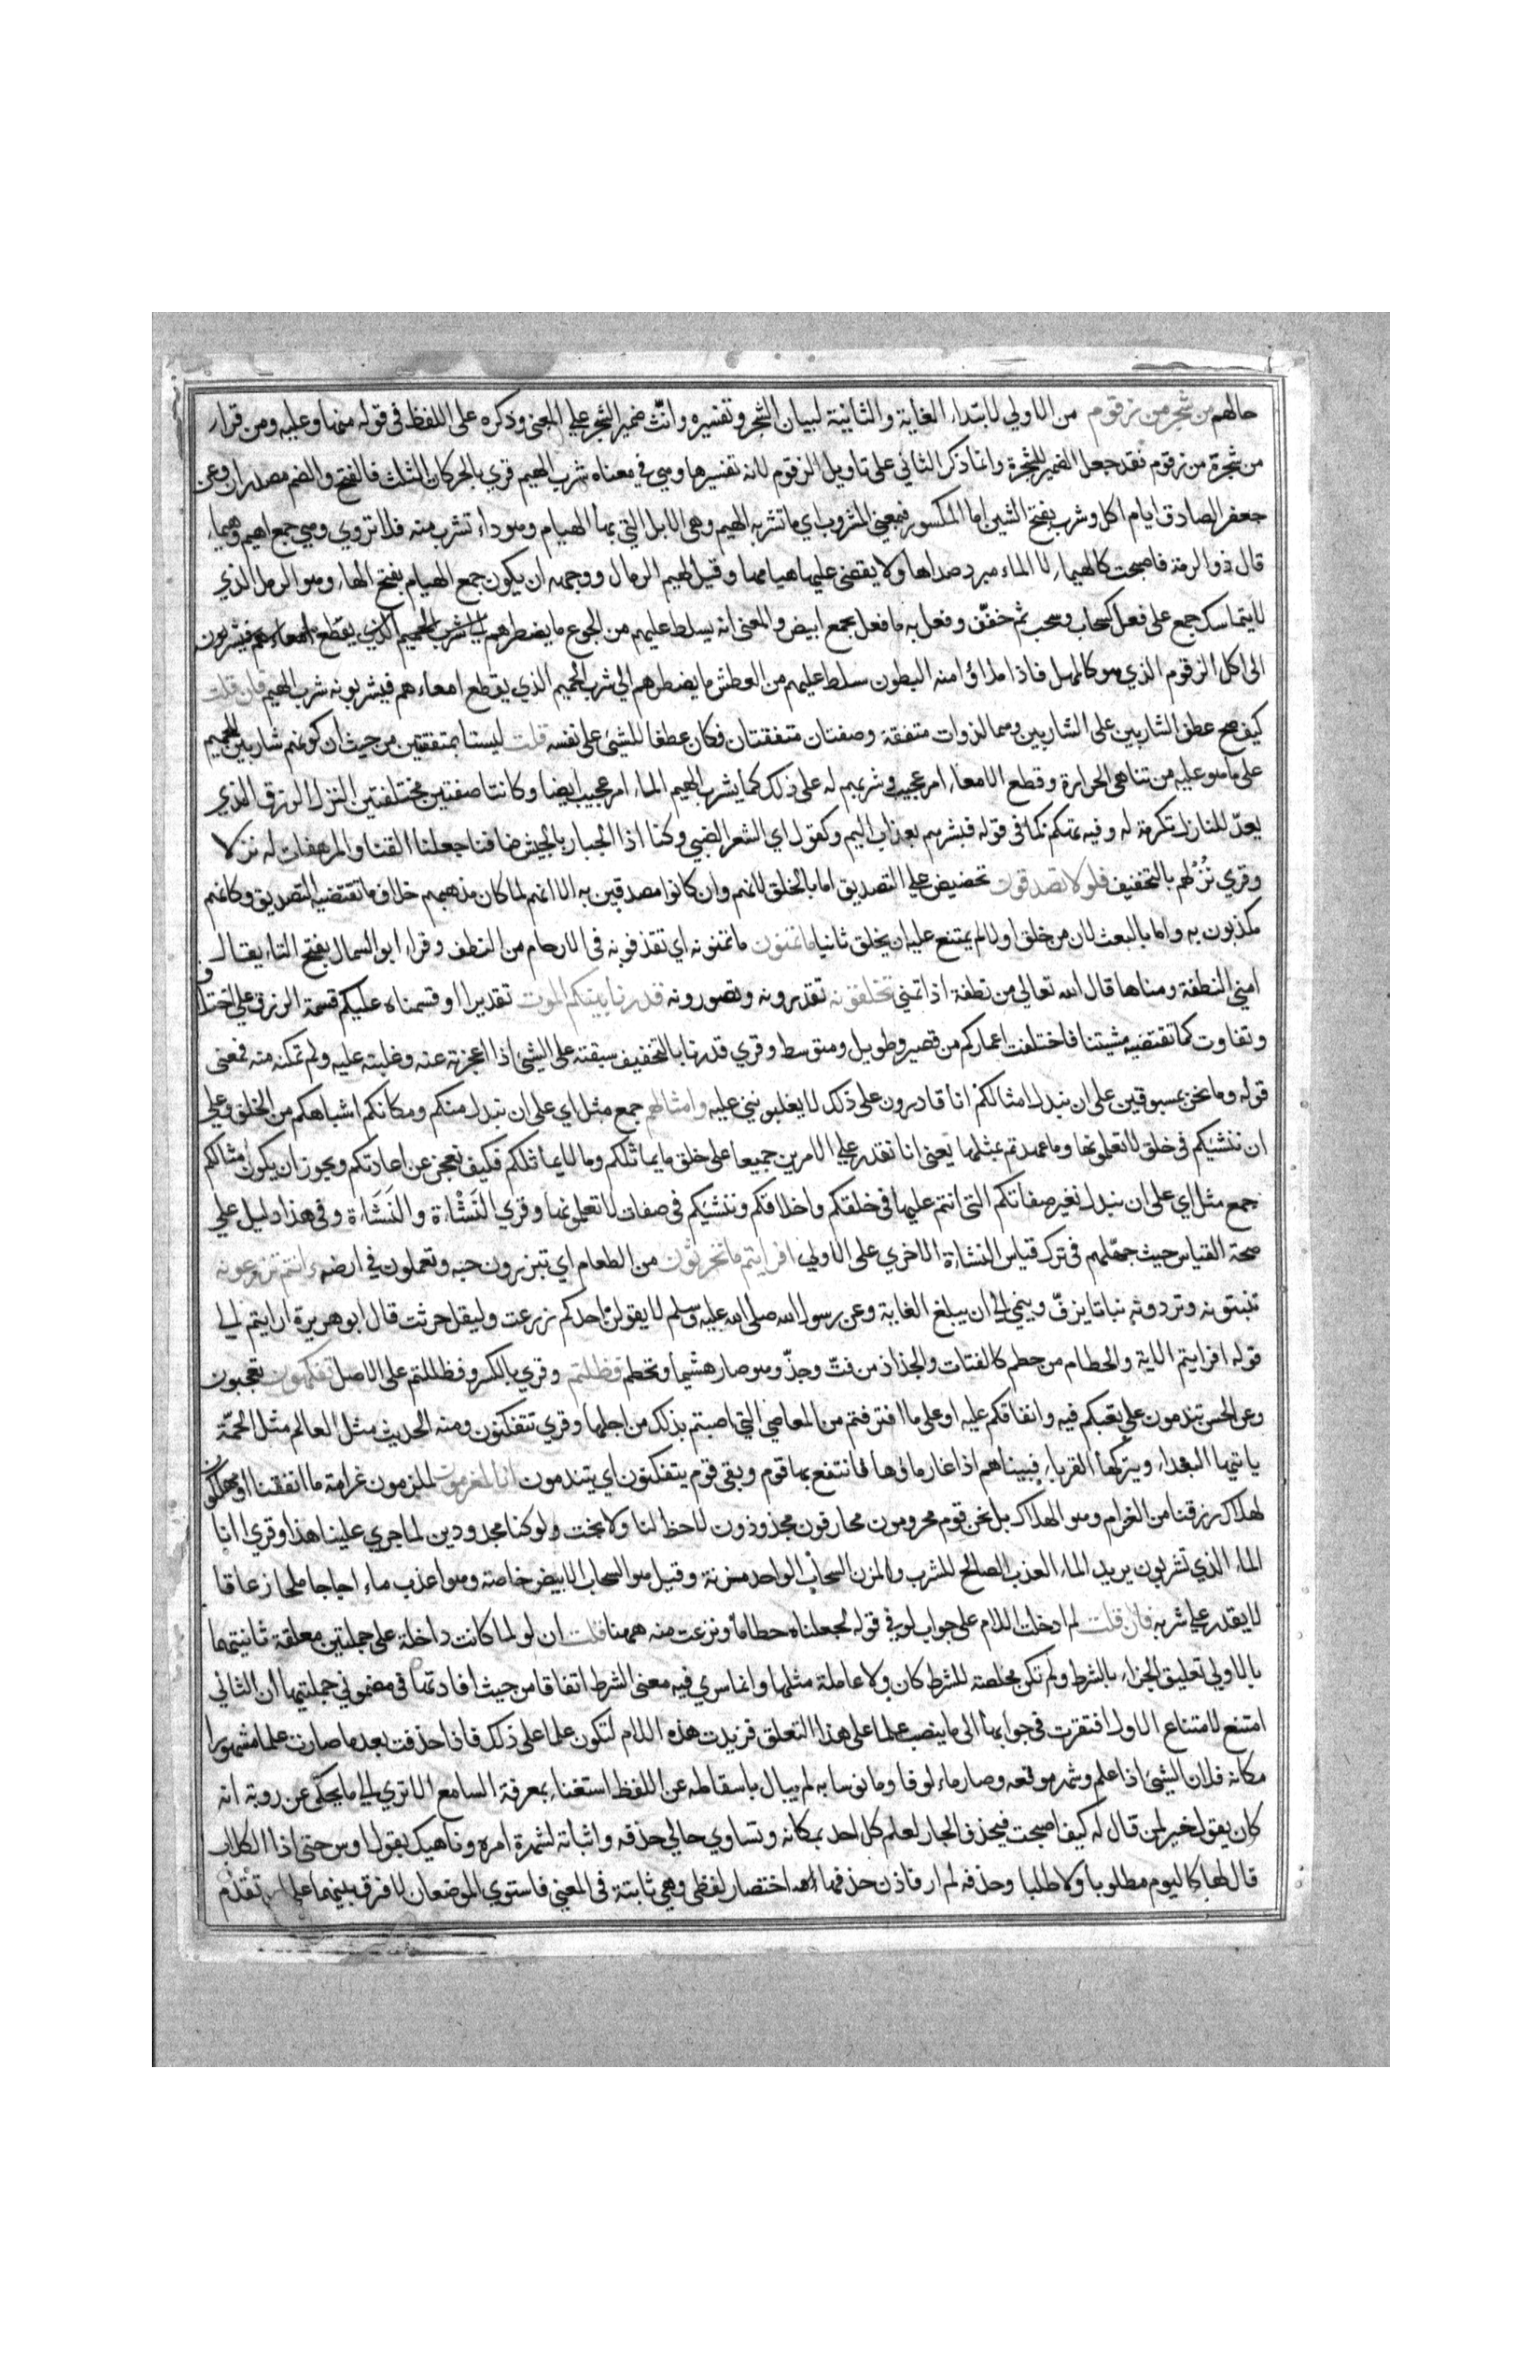 حالهم من شجر من زقوم من الاولي لابتداء الغاية والثانية لبيان الشجر وتفسيره وانّث ضمير الشجر علي المعني وذكره على اللفظ فى قوله منها وعليه ومن قرا
من شجرة من زقوم فقد جعل الضمير للشجرة وانما ذكر الثاني على تاويل الزقوم لانه تفسيرها وهي في معناه شرب الهيم قري بالحركات الثلث فالفتح والضم مصدران وعن
جعفر الصادق ايام اكل وشرب بفتح الشين اما المكسور فبمعني المشروب اي ما تشربه الهيم وهى الابل التي بها الهيام وهو داء تشرب منه فلا تروي وهي جمع اهيم وهيماء
قال ذو الرمة فاصبحت كالهيماء لا الماء مبرد صداها ولا يقضي عليها هيامها وقيل الهيم الرمال ووجهه ان يكون جمع الهيام بفتح الهاء وهو الرمل الذي
لا يتماسك جمع على فعل كسحاب وسحب ثم خفّف وفعل به ما فعل بجمع ابيض والمعنى انه يسلط عليهم من الجوع ما يضطرهم
الى اكل الزقوم الذي هو كالمهل فاذا ملاؤا منه البطون سلط عليهم من العطش ما يضطرهم الي شرب الحميم الذي يقطع امعاءهم فيشربونه شرب الهيم فان قلت
كيف صح عطف الشاربين على الشاربين وهما لذوات متفقة وصفتان متفقتان فكان عطفا للشئ على نفسه قلت ليستا بمتفقتين من حيث ان كونهم شاربين للحميم
على ما هو عليه من تناهى الحرارة وقطع الامعاء امر عجيب وشربهم له على ذلك كما يشرب الهيم الماء امر عجيب ايضا وكانتا صفتين مختلفتين النزل الرزق الذي
يعدّ للنازل تكرمة له وفيه تهكم كما فى قوله فبشرهم بعذاب اليم وكقول ابي الشعر الضبي وكنا اذا الجبار بالجيش ضافنا جعلنا القنا والمرهفات له نزلا
وقري نُزْلهم بالتخفيف فلولا تصدقون تحضيض علي التصديق اما بالخلق لانهم وان كانوا مصدقين به الا انهم لما كان مذهبهم خلاف ما تقتضيه التصديق وكانهم
مكذبون به واما بالبعث لان من خلق اولا لم يمتنع عليه ان يخلق ثانيا ما تمنون ما تمنونه اي تقذفونه فى الارحام من النطف وقرا ابو السمال بفتح التاء يقال
امني النطفة ومناها قال الله تعالي من نطفة اذا تمني تخلقونه تقدرونه وتصورونه قدرنا بينكم الموت تقديرا وقسمناه عليكم قسمة الرزق علي اختلاف
وتفاوت كما تقتضيه مشيتنا فاختلفت اعماركم من قصير وطويل ومتوسط وقري قدرنا بالتخفيف سبقته على الشئ اذا اعجزته عنه وغلبته عليه ولم تمكنه منه فمعنى
قوله وما نحن بمسبوقين على ان نبدل امثالكم انا قادرون على ذلك لا يغلبونني عليه وامثالهم جمع مثل اي على ان نبدل منكم ومكانكم اشباهكم من الخلق وعلي
ان ننشيكم فى خلق لا تعلمونها وما عهدتم بمثلها يعنى انا نقدر علي الامرين جميعا على خلق ما يماثلكم وما لا يماثلكم فكيف نعجز عن اعادتكم ويجوز ان يكون امثالكم
جمع مثل اي على ان نبدل نغير صفاتكم التى انتم عليها فى خلقكم واخلاقكم وننشيكم فى صفات لا تعلمونها وقري النَشْاة والنَشَاءة وفى هذا دليل علي
صحة القياس حيث جهّلهم فى ترك قياس النشاة الاخري على الاولي افرايتم ما تحرثون من الطعام اي تبذرون حبه وتعملون في ارضه ءانتم تزرعونه
تنبتونه وتردونه نباتا يزفّ وينمي الي ان يبلغ الغاية وعن رسول الله صلى الله عليه وسلم لا يقولنّ احدكم زرعت وليقل حرثت قال ابو هريرة ارايتم الي
قوله افرايتم الاية والحطام من حطم كالفتات والجذاذ من فتّ وجذّ وهو صار هشيما وتحطم فظلتم وقري بالكسر وفظللتم على الاصل تفكهون تعجبون
وعن الحسن تندمون علي تعبكم فيه وانفاقكم عليه او على ما اقترفتم من المعاصي التي اصبتم بذلك من اجلها وقري تتفكنون ومنه الحديث مثل العالم مثل الحمّة
ياتيها البعداء ويتركها القرباء فبيناهم اذا غار ماؤها فانتفع بها قوم وبقى قوم يتفكنون اي يتندمون انا لمغرمون لملزمون غرامة ما انفقنا او مهلكون
لهلاك رزقنا من الغرام وهو الهلاك بل نحن قوم محرومون محارفون مجذوذون لا حظ لنا ولا بخت ولو كنا مجدودين لما جري علينا هذا وقري اانا
الماء الذي تشربون يريد الماء العذب الصالح للشرب والمزن السحاب الواحد مزنة وقيل هو السحاب الابيض خاصة وهو اعذب ماء اجاجا ملحا زعاقا
لا يقدر علي شربه فان قلت لم ادخلت اللام على جواب لو في قوله لجعلناه حطاما ونزعت منه ههنا قلت ان لو لما كانت داخلة على جملتين معلقة ثانيتهما
بالاولي تعليق الجزاء بالشرط ولم تكن مخلصة للشرط كان ولا عاملة مثلها وانما سري فيه معنى الشرط اتفاقا من حيث افادتها فى مضموني جملتيها ان الثاني
امتنع لامتناع الاول افتقرت في جوابها الى ما ينصب علما على هذا التعلق فزيدت هذه اللام لتكون علما على ذلك فاذا حذفت بعد ما صارت علما مشهورا
مكانه فلان الشئ اذا علم وشهر موقعه وصار مالوفا ومانوسا به لم يبال باسقاطه عن اللفظ استغناء بمعرفة السامع الا تري الي ما يحكى عن روبة انه
كان يقول خير لمن قال له كيف اصبحت فيحذف الجار لعلم كل احد بمكانه وتساوي حالي حذفه واثباته لشهرة امره وناهيك بقول اوس حتى اذا الكلاب
قال لها كاليوم مطلوبا ولا طلبا وحذفه لم ار فاذن حذفها اختصار لفظى وهي ثابتة فى المعني فاستوي الموضعان لا فرق بينهما على تقدّم